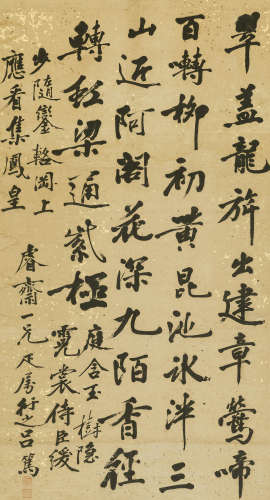 翠蓋龍旂出建章鶯啼
百囀柳初黃昆池冰泮三
山近阿閣花深九陌香徑
轉虹梁通紫極
庭含玉樹隱
霓裳侍臣緩
步隨鑾輅岡上
應看集鳳皇
睿齋一兄